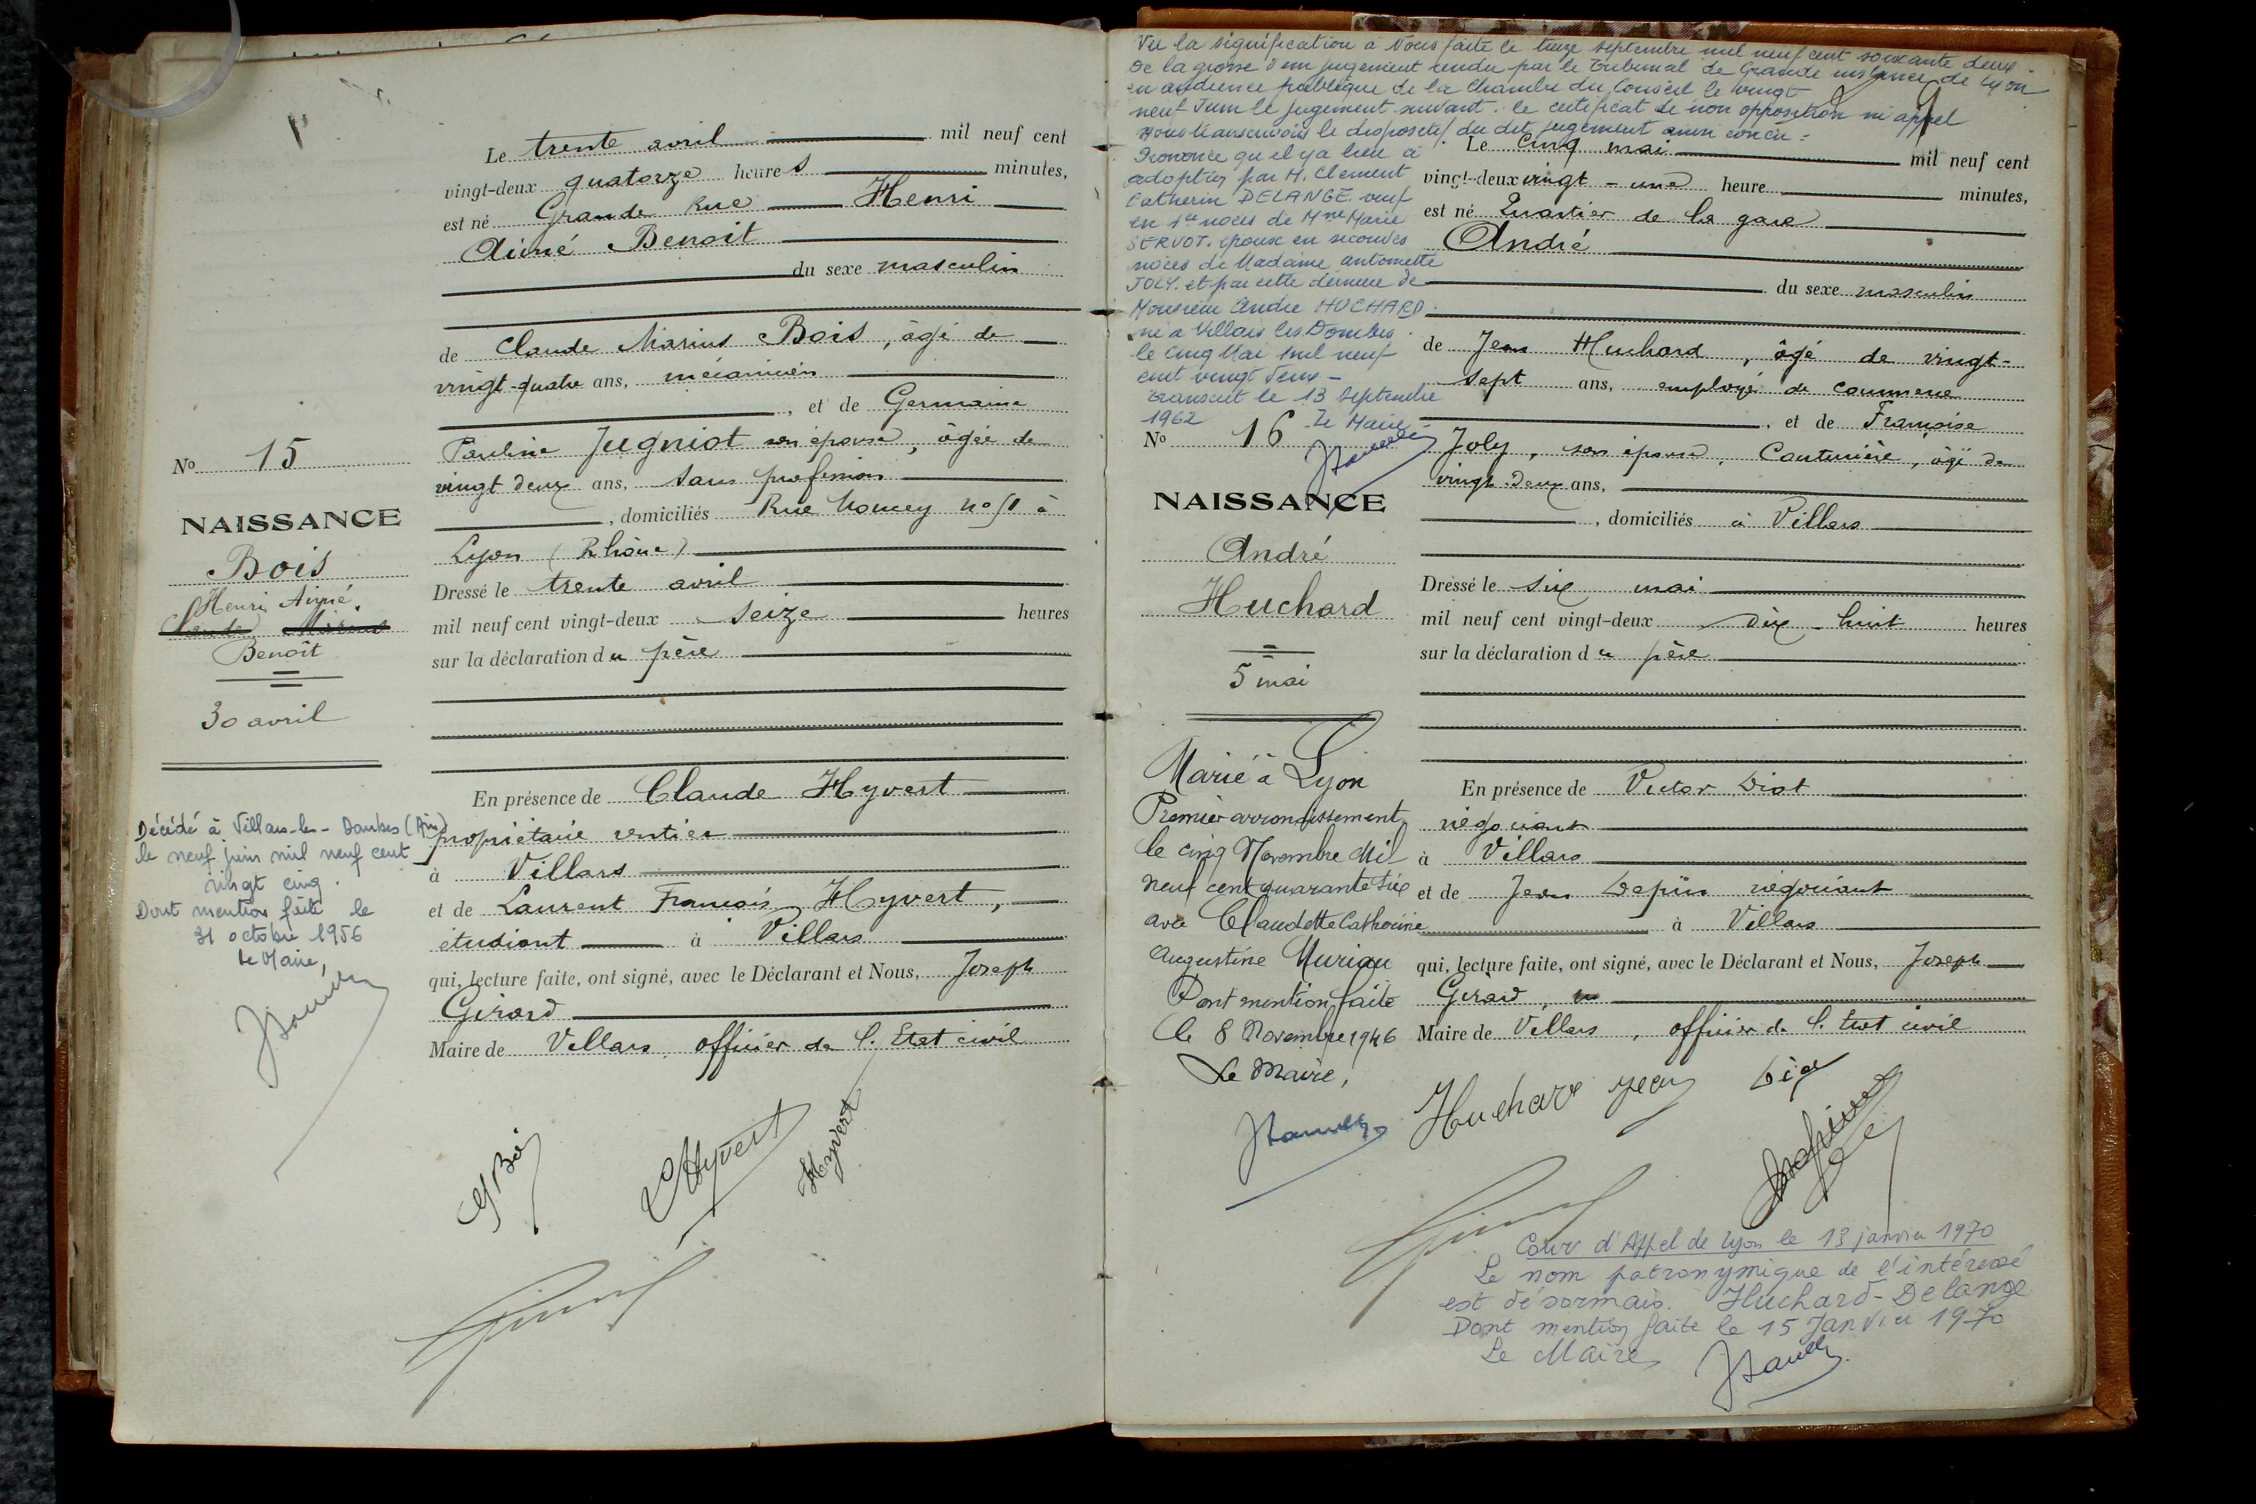 Le trente avril mil neuf cent
vingt-deux quatorze heures minutes,
est né Grande Rue Henri
Aimé Benoit
du sexe masculin
de Claude Marius Bois, âgé de
vingt-quatre ans, mécanicien
, et de Germaine
Pauline Jugniot son épouse, âgée de
vingt deux ans, sans profession
, domiciliés Rue à
Lyon (Rhône)
Dressé le trente avril
mil neuf cent vingt-deux seize heures
sur la déclaration du père
En présence de Claude Hyvert
propriétaire rentier
à Villars
et de Laurent François Hyvert,
étudiant à Villars
qui, lecture faite, ont signé, avec le Déclarant et Nous, Joseph
Girard
Maire de Villars, officier de l'Etat civil
No 15
NAISSANCE
Bois
Henri Aimé
Claude Marius
Benoît
30 avril
Décédé à Villars-les-Dombes (Ain)
le neuf juin mil neuf cent
vingt cinq.
Dont mention faite le
31 octobre 1956
Le Maire,
Hyvert
Hyvert
Vu la signification à nous faite le treize septembre mil neuf cent soixante deux
de la grosse d'un jugement rendu par le Tribunal de Grande instance de Lyon
en audience publique de la Chambre du Conseil le vingt
neuf Juin le jugement suivant. le certificat de non opposition ni appel
Nous transcrivons le dispositif du dit jugement ainsi concu :
Prononce qu'il y a lieu à
adoption par M. Clement
Catherin DELANGE veuf
en 1re noces de Mme Marie
SERVOT. époux en secondes
noces de Madame antoinette
JOLY. et par cette derniere de
Monsieur Andre HUCHARD.
né a Villars les Dombes.
le cinq Mai mil neuf
cent vingt deux -
transcrit le 13 septembre
1962 Le Maire
No 16
NAISSANCE
André
Huchard
5 mai
Marié à Lyon
Premier arrondissement,
le cinq Novembre Mil
neuf cent quarante six
avec Claudette Catherine
Augustine Muriau
Dont mention faite
le 8 Novembre 1946
Le Maire,
Le cinq mai mil neuf cent
vingt-deux vingt-une heure minutes,
est né Quartier de la gare
André
du sexe masculin
de Jean Huchard, âgé de vingt-
sept ans, employé de commerce
, et de Françoise
Joly, son épouse, Couturière, âgé de
vingt-deux ans,
, domiciliés à Villars
Dressé le six mai
mil neuf cent vingt-deux dix-huit heures
sur la déclaration du père
En présence de Victor Diot
négociant
à Villars
et de Jean négociant
à Villars
qui, lecture faite, ont signé, avec le Déclarant et Nous, Joseph
Girard,
Maire de Villars, officier de l'Etat civil
Huchard Jean
Cour d'Appel de Lyon le 13 janvier 1970
Le nom patronymique de l'intéressé
est désormais. Huchard-Delange
Dont mention faite le 15 Janvier 1970
Le Maire